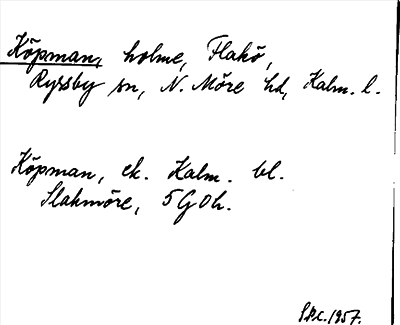 Köpman, holme, Flakö,
Ryssby sn, N. Möre hd, Kalm. l.
Köpman, ek. Kalm. bl.
Slakmöre, 5 G 0 h.
1957.